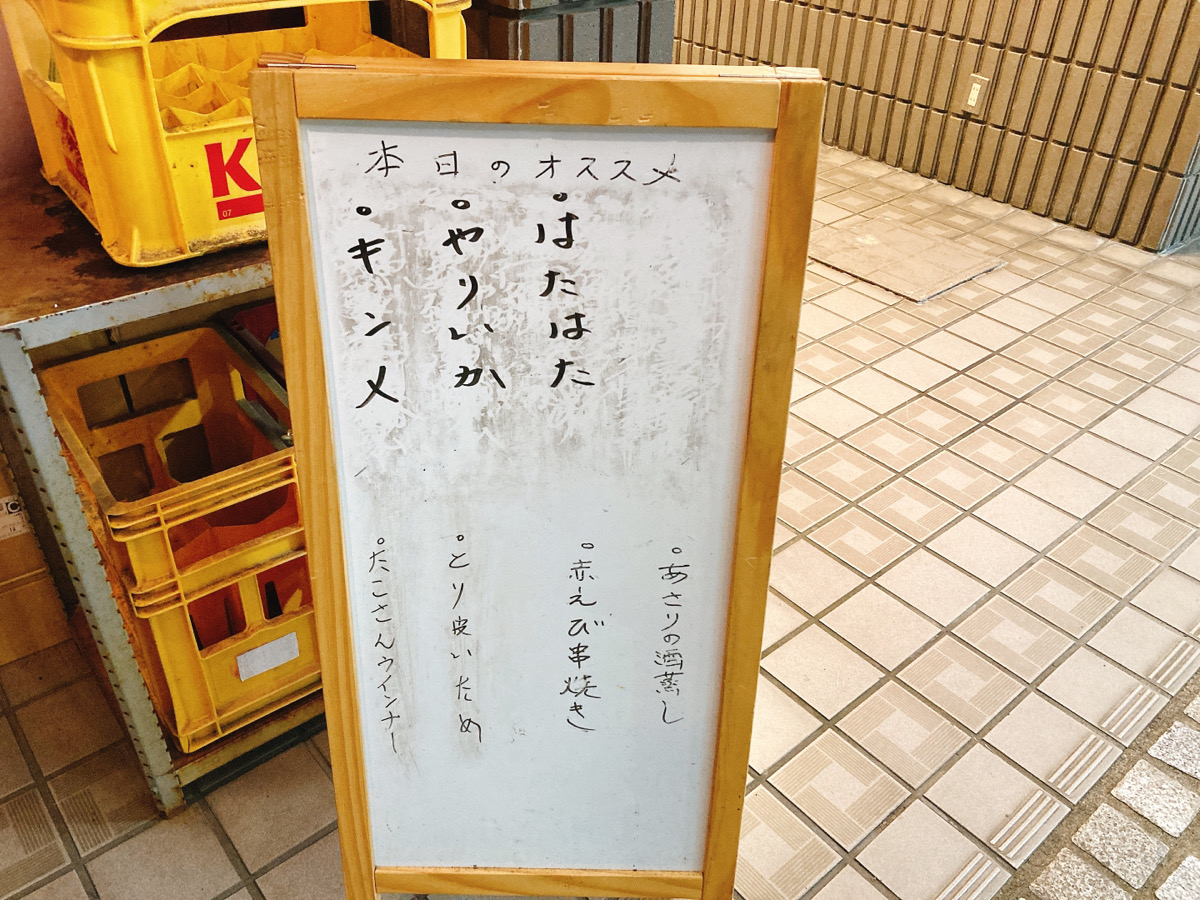 本日のオススメ
・はたはた
・やりいか
・キンメ
・あさりの酒蒸し
・赤えび串焼き
・とり皮いため
・たこさんウインナー
K
07